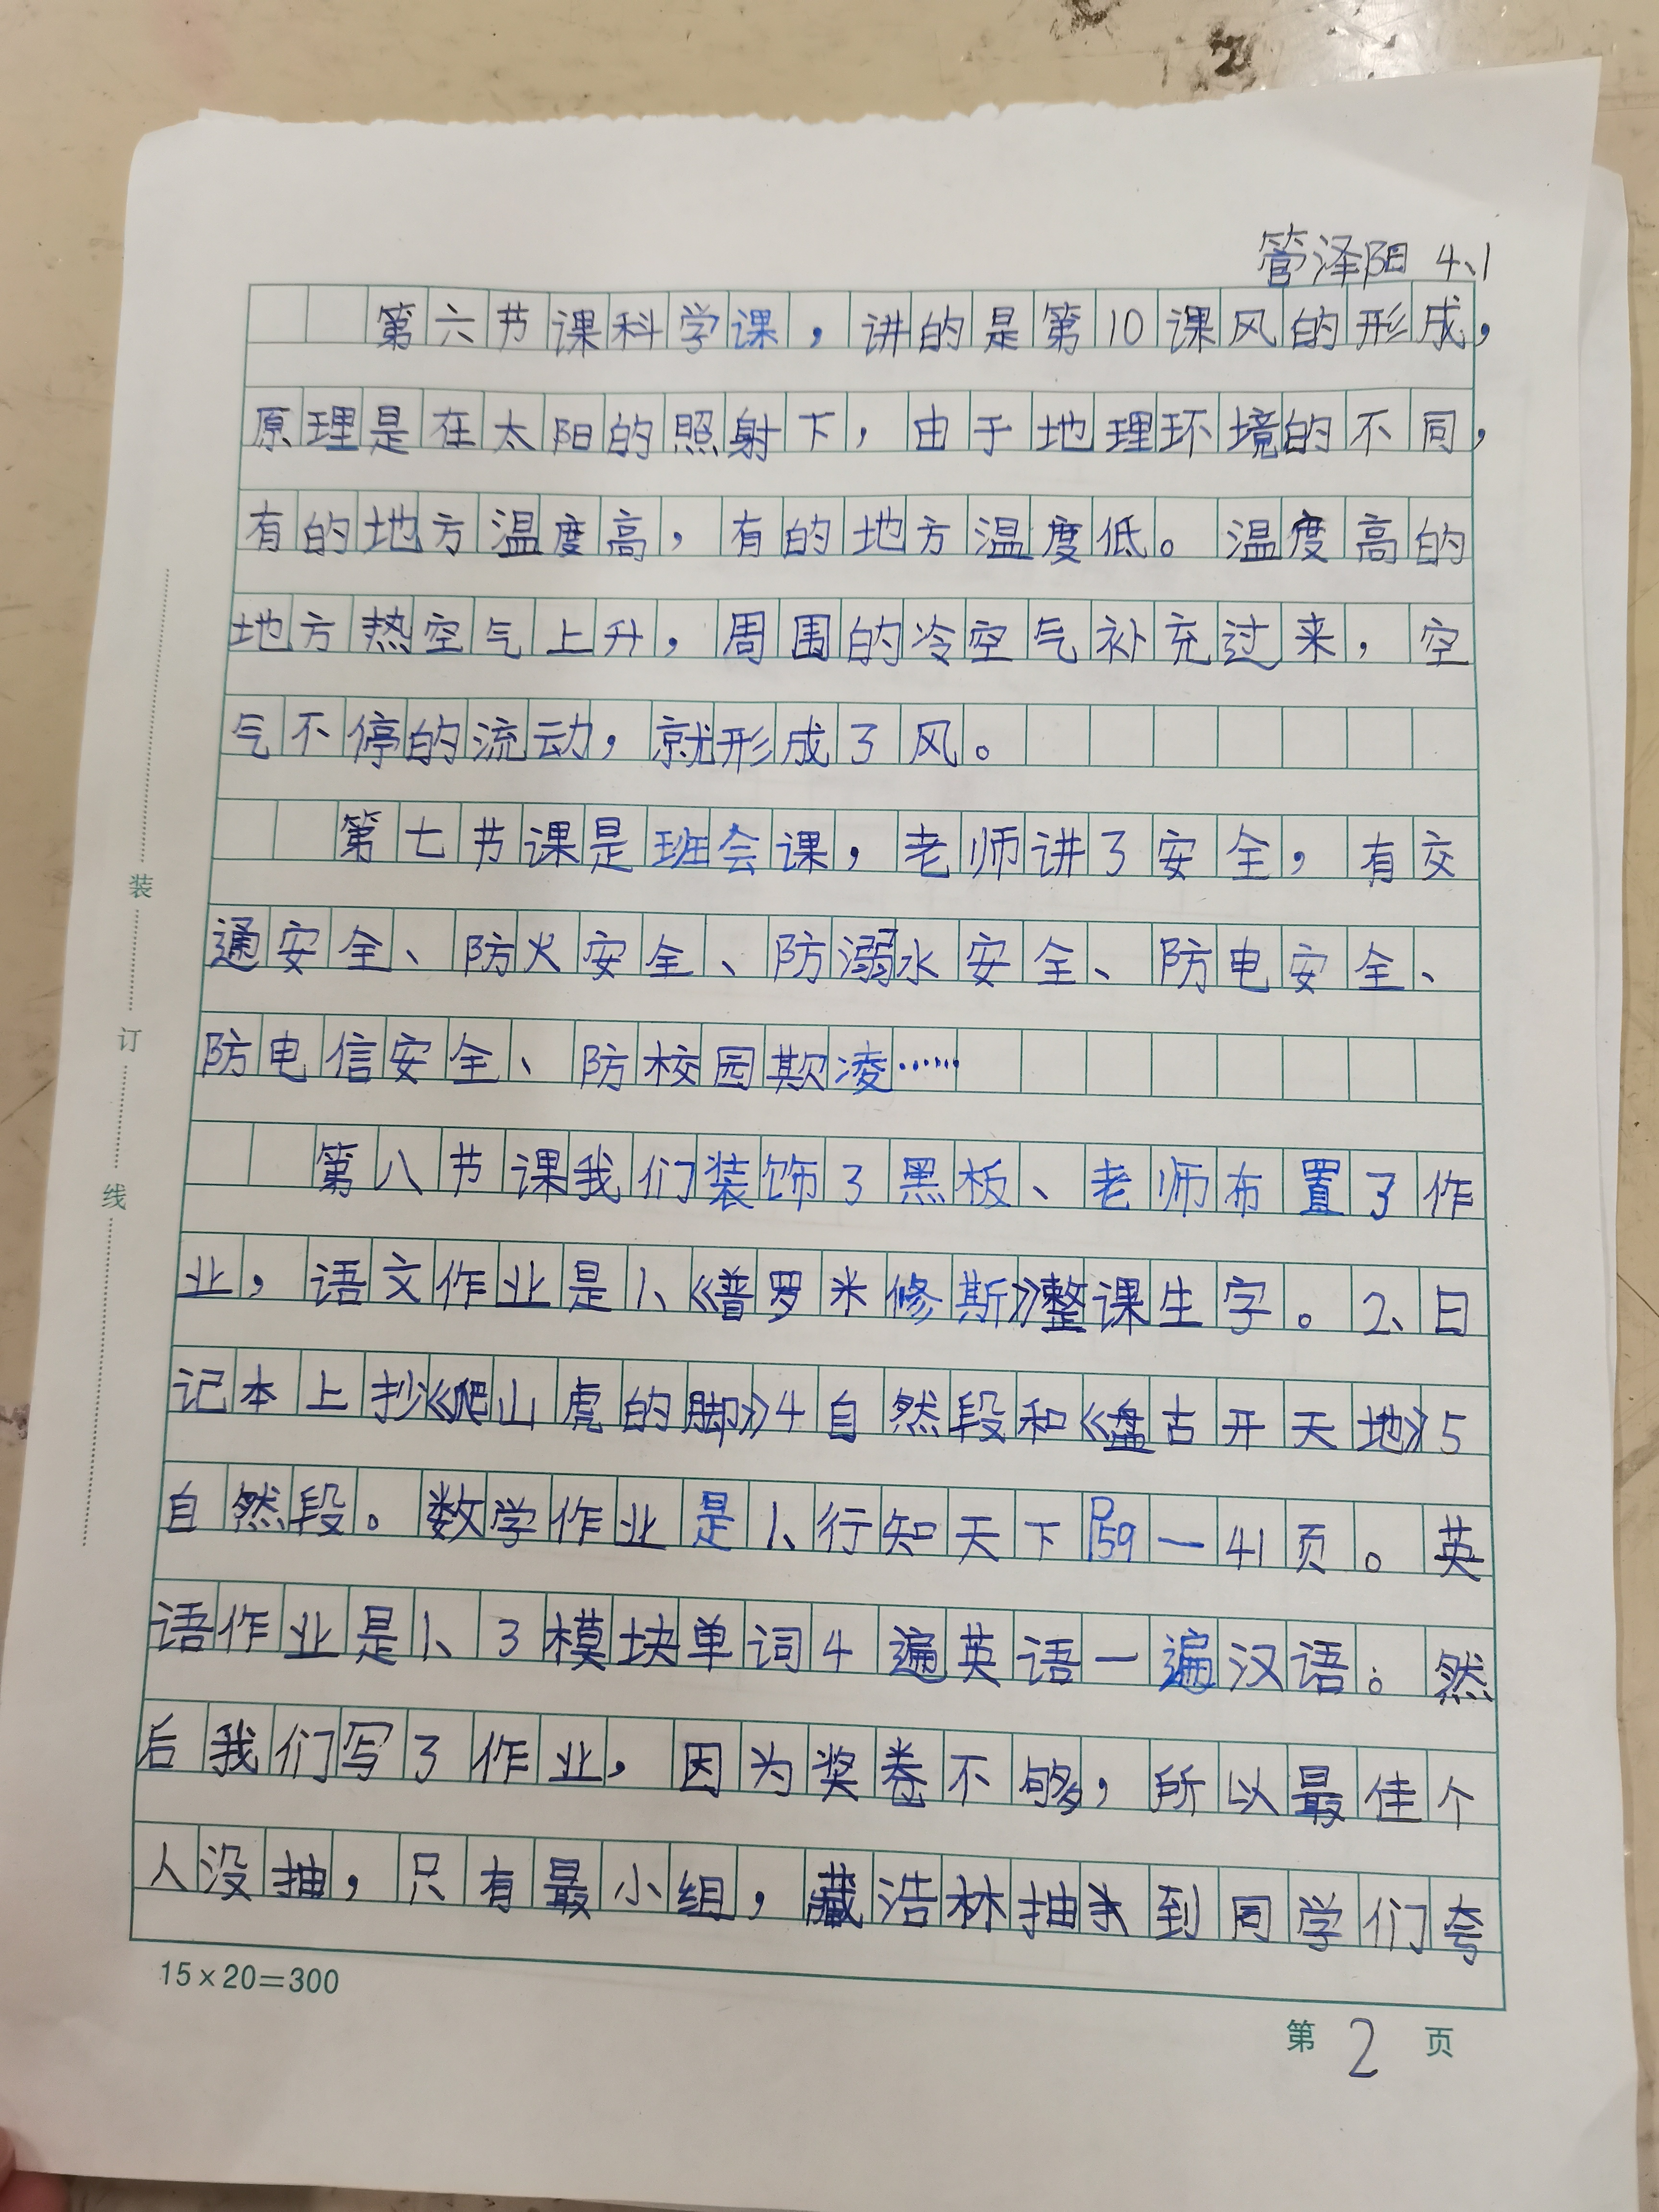 管泽阳 4、1
第六节课科学课，讲的是第10课风的形成，
原理是在太阳的照射下，由于地理环境的不同，
有的地方温度高，有的地方温度低。温度高的
地方热空气上升，周围的冷空气补充过来，空
气不停的流动，就形成了风。
第七节课是班会课，老师讲了安全，有交
通安全、防火安全、防溺水安全、防电安全、
防电信安全、防校园欺凌……
第八节课我们装饰了黑板、老师布置了作
业，语文作业是1、《普罗米修斯》整课生字。2、日
记本上抄《爬山虎的脚》4自然段和《盘古开天地》5
自然段。数学作业是1、行知天下P59—41页。英
语作业是1、3模块单词4遍英语一遍汉语。然
后我们写了作业，因为奖卷不够，所以最佳个
人没抽，只有最小组，藏浩林抽到同学们夸
15×20=300
第 2 页
装
订
线